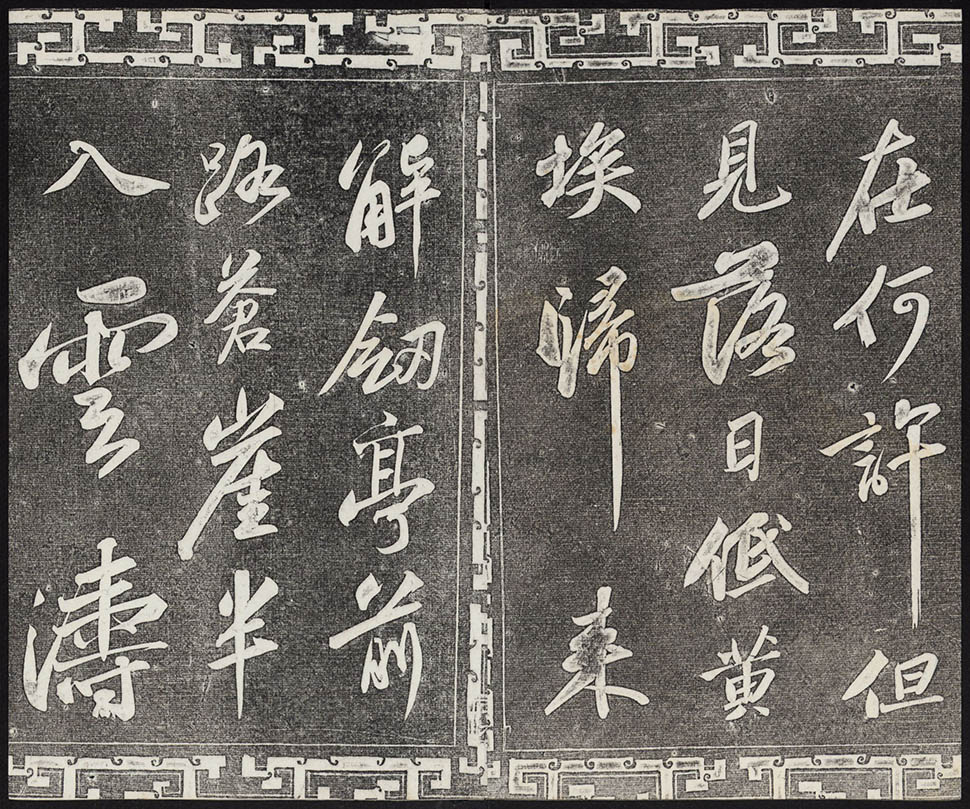 在何許但
見落日低黄
埃歸來
解劒亭前
路蒼崖半
入雲濤